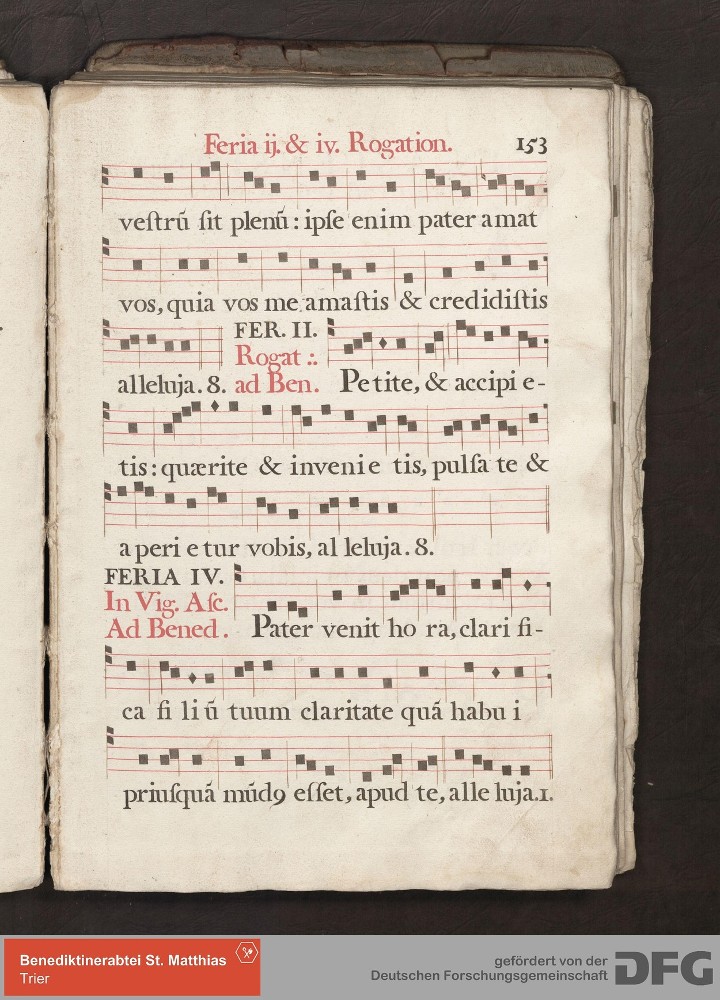 Feria ij. & iv. Rogation. 153
veſtrũ ſit plenũ : ipſe enim pater amat
vos, quia vos me amaſtis & credidiſtis
alleluja. 8.
FER. II.
Rogat ∴
ad Ben.
Petite, & accipi e-
tis: quærite & invenie tis, pulſa te &
aperi e tur vobis, al leluja. 8.
FERIA IV.
In Vig. Aſc.
Ad Bened.
Pater venit ho ra, clari fi-
ca fi li ũ tuum claritate quã habu i
priuſquã mũdꝯ eſſet, apud te, alle luja. 1.
Benediktinerabtei St. Matthias
Trier
gefördert von der
Deutschen Forschungsgemeinschaft
DFG